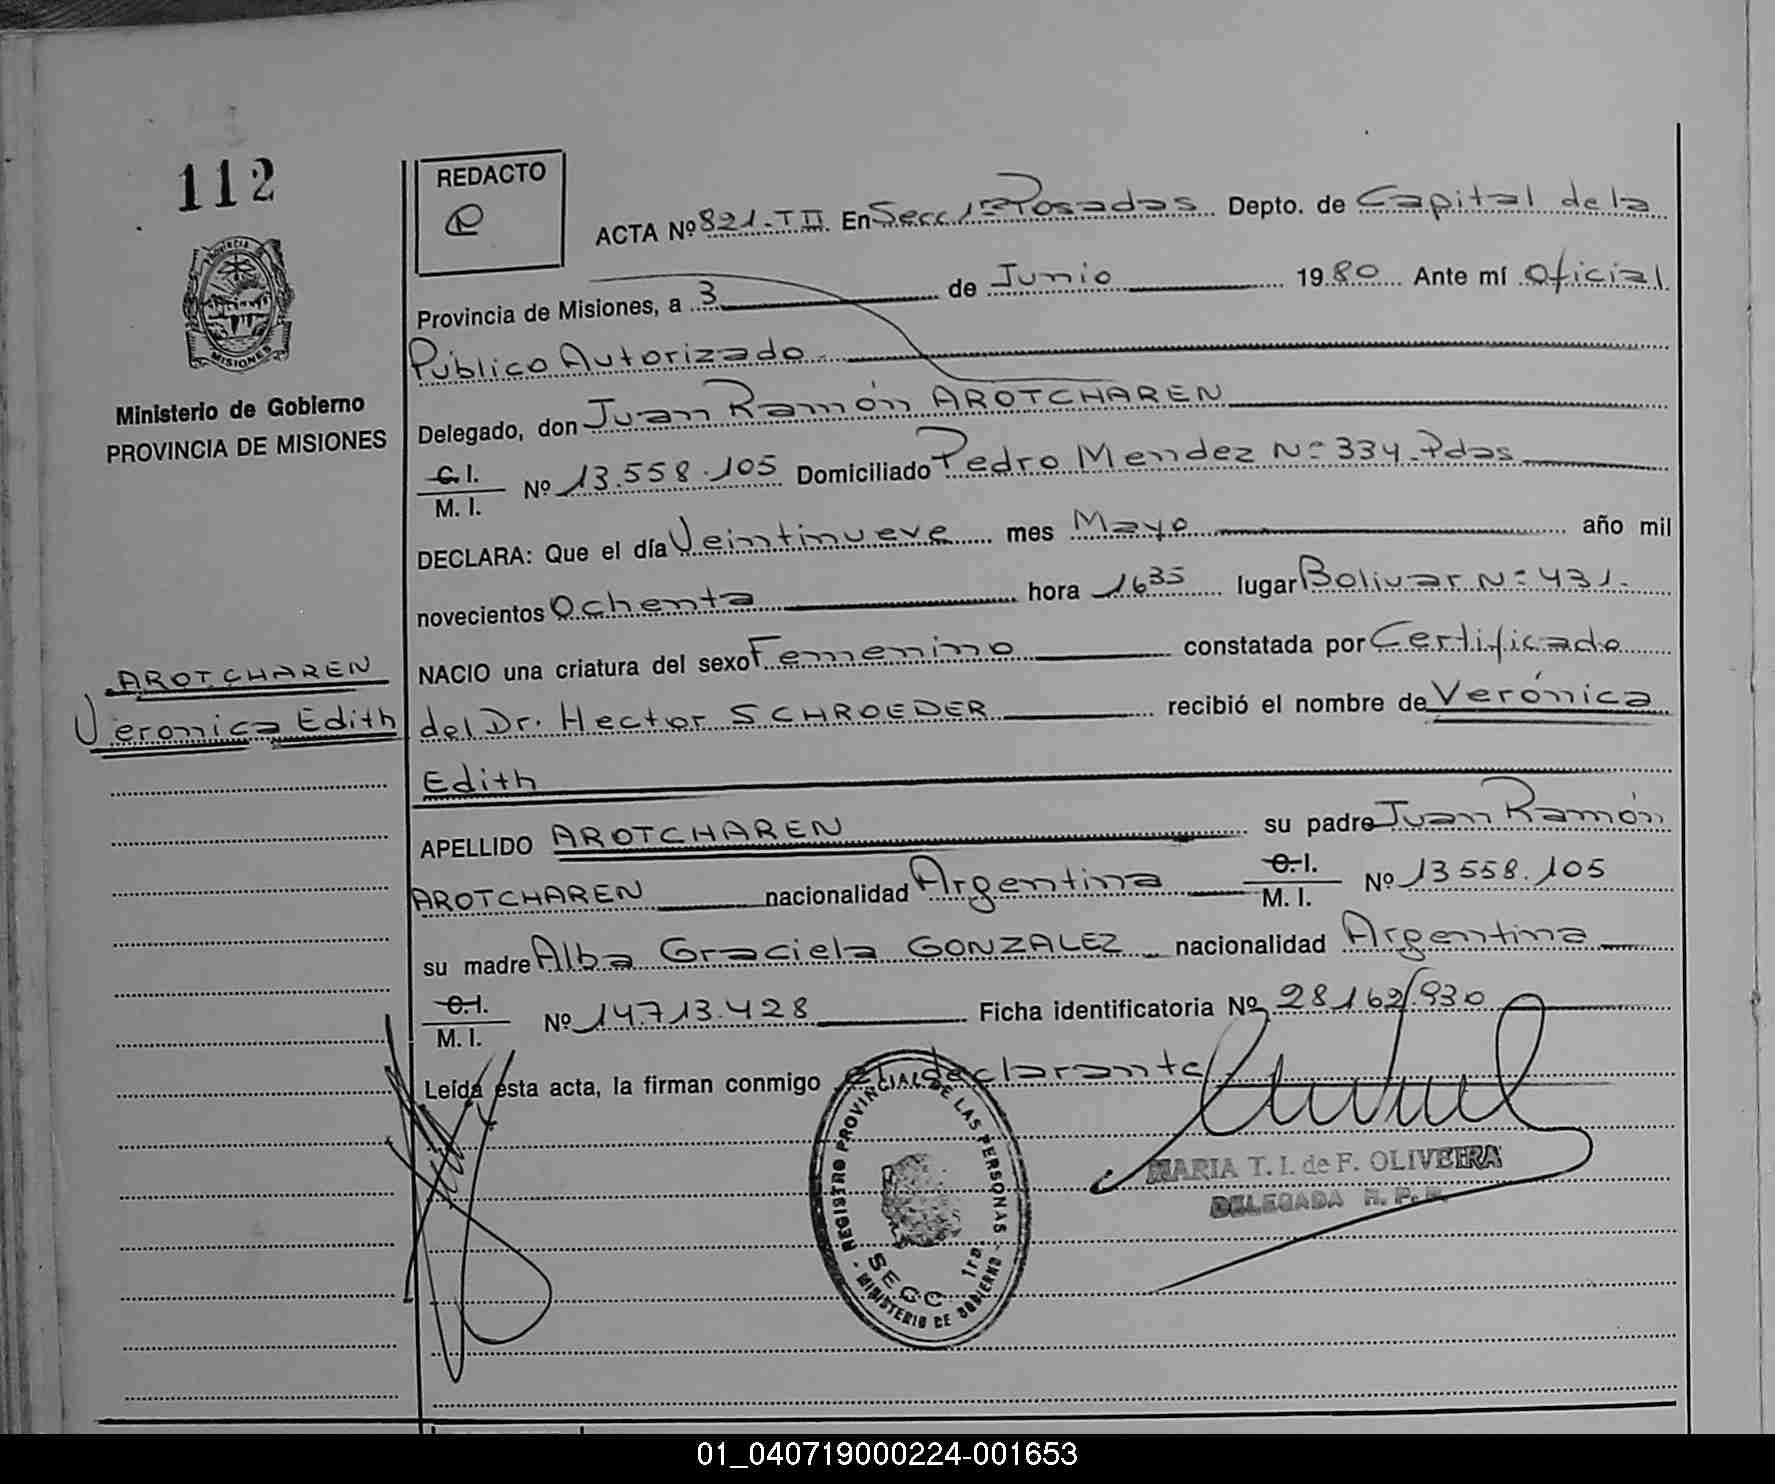 112
REDACTO
ACTA Nº 821-T II En Secc 1ª Posadas Depto. de Capital de la
Provincia de Misiones, a 3 de Junio 1980 Ante mí Oficial
Público Autorizado
Delegado, don Juan Ramón AROTCHAREN
C. I.
M. I. Nº 13.558.105 Domiciliado Pedro Mendez Nº 334 Pdas
DECLARA: Que el día Veintinueve mes Mayo año mil
novecientos Ochenta hora 16 35 lugar Bolivar Nº 431.
NACIO una criatura del sexo Femenino constatada por Certificado
del Dr. Hector SCHROEDER recibió el nombre de Verónica
Edith
APELLIDO AROTCHAREN su padre Juan Ramón
AROTCHAREN nacionalidad Argentina C. I. M. I. Nº 13558.105
su madre Alba Graciela GONZALEZ nacionalidad Argentina
C. I.
M. I. Nº 14.713.428 Ficha identificatoria Nº 28162/930
Leída esta acta, la firman conmigo el declarante
PROVINCIA
MISIONES
Ministerio de Gobierno
PROVINCIA DE MISIONES
AROTCHAREN
Veronica Edith
REGISTRO PROVINCIAL DE LAS PERSONAS
SECC. 1ra
MINISTERIO DE GOBIERNO
MARIA T. I. de F. OLIVEIRA
DELEGADA R. P.
01_040719000224-001653